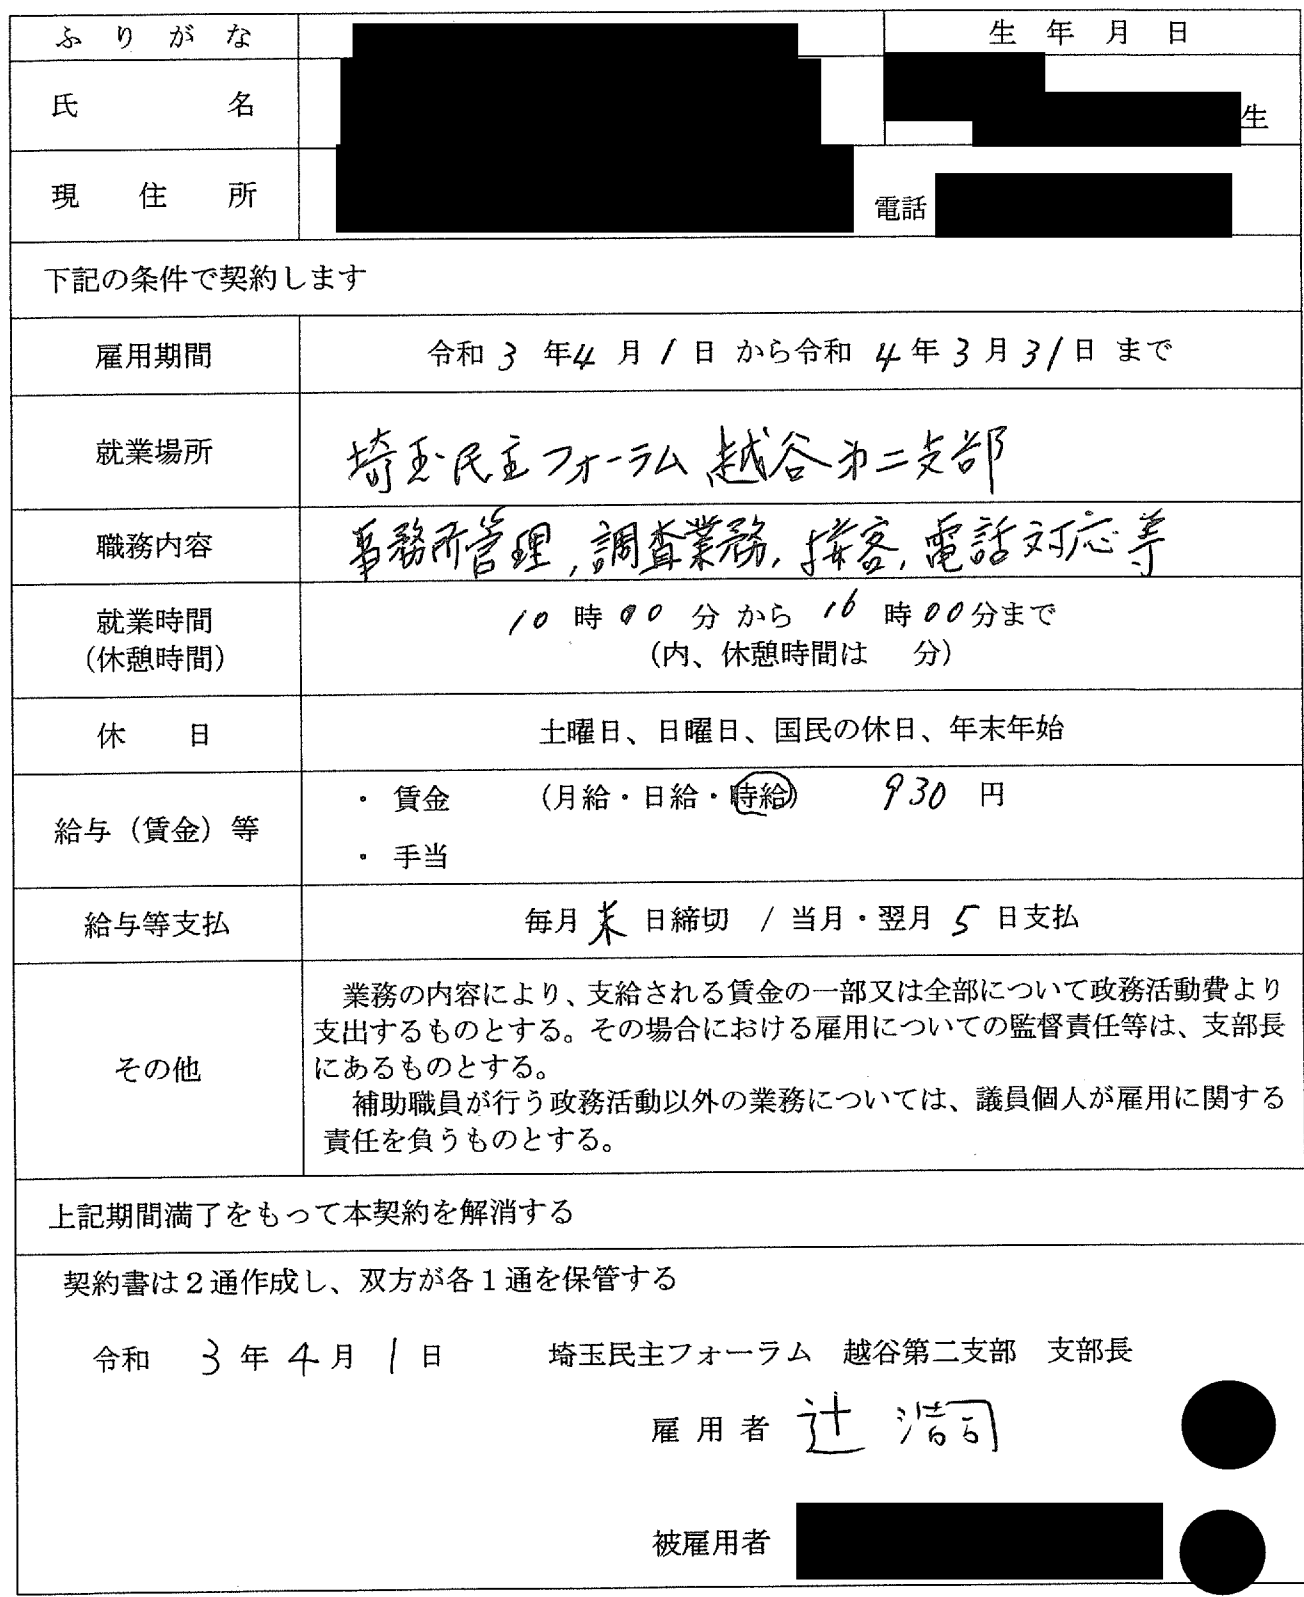 ふりがな
生年月日
氏名
生
現住所
電話
下記の条件で契約します
雇用期間
令和3年4月1日から令和4年3月31日まで
就業場所
埼玉民主フォーラム 越谷第二支部
職務内容
事務所管理,調査業務,接客,電話対応等
就業時間
(休憩時間)
10時00分から16時00分まで
(内、休憩時間は 分)
休日
土曜日、日曜日、国民の休日、年末年始
給与(賃金)等
・賃金 (月給・日給・時給) 930円
・手当
給与等支払
毎月末日締切 / 当月・翌月5日支払
その他
業務の内容により、支給される賃金の一部又は全部について政務活動費より
支出するものとする。その場合における雇用についての監督責任等は、支部長
にあるものとする。
補助職員が行う政務活動以外の業務については、議員個人が雇用に関する
責任を負うものとする。
上記期間満了をもって本契約を解消する
契約書は2通作成し、双方が各1通を保管する
令和3年4月1日 埼玉民主フォーラム 越谷第二支部 支部長
雇用者 辻 浩司
被雇用者